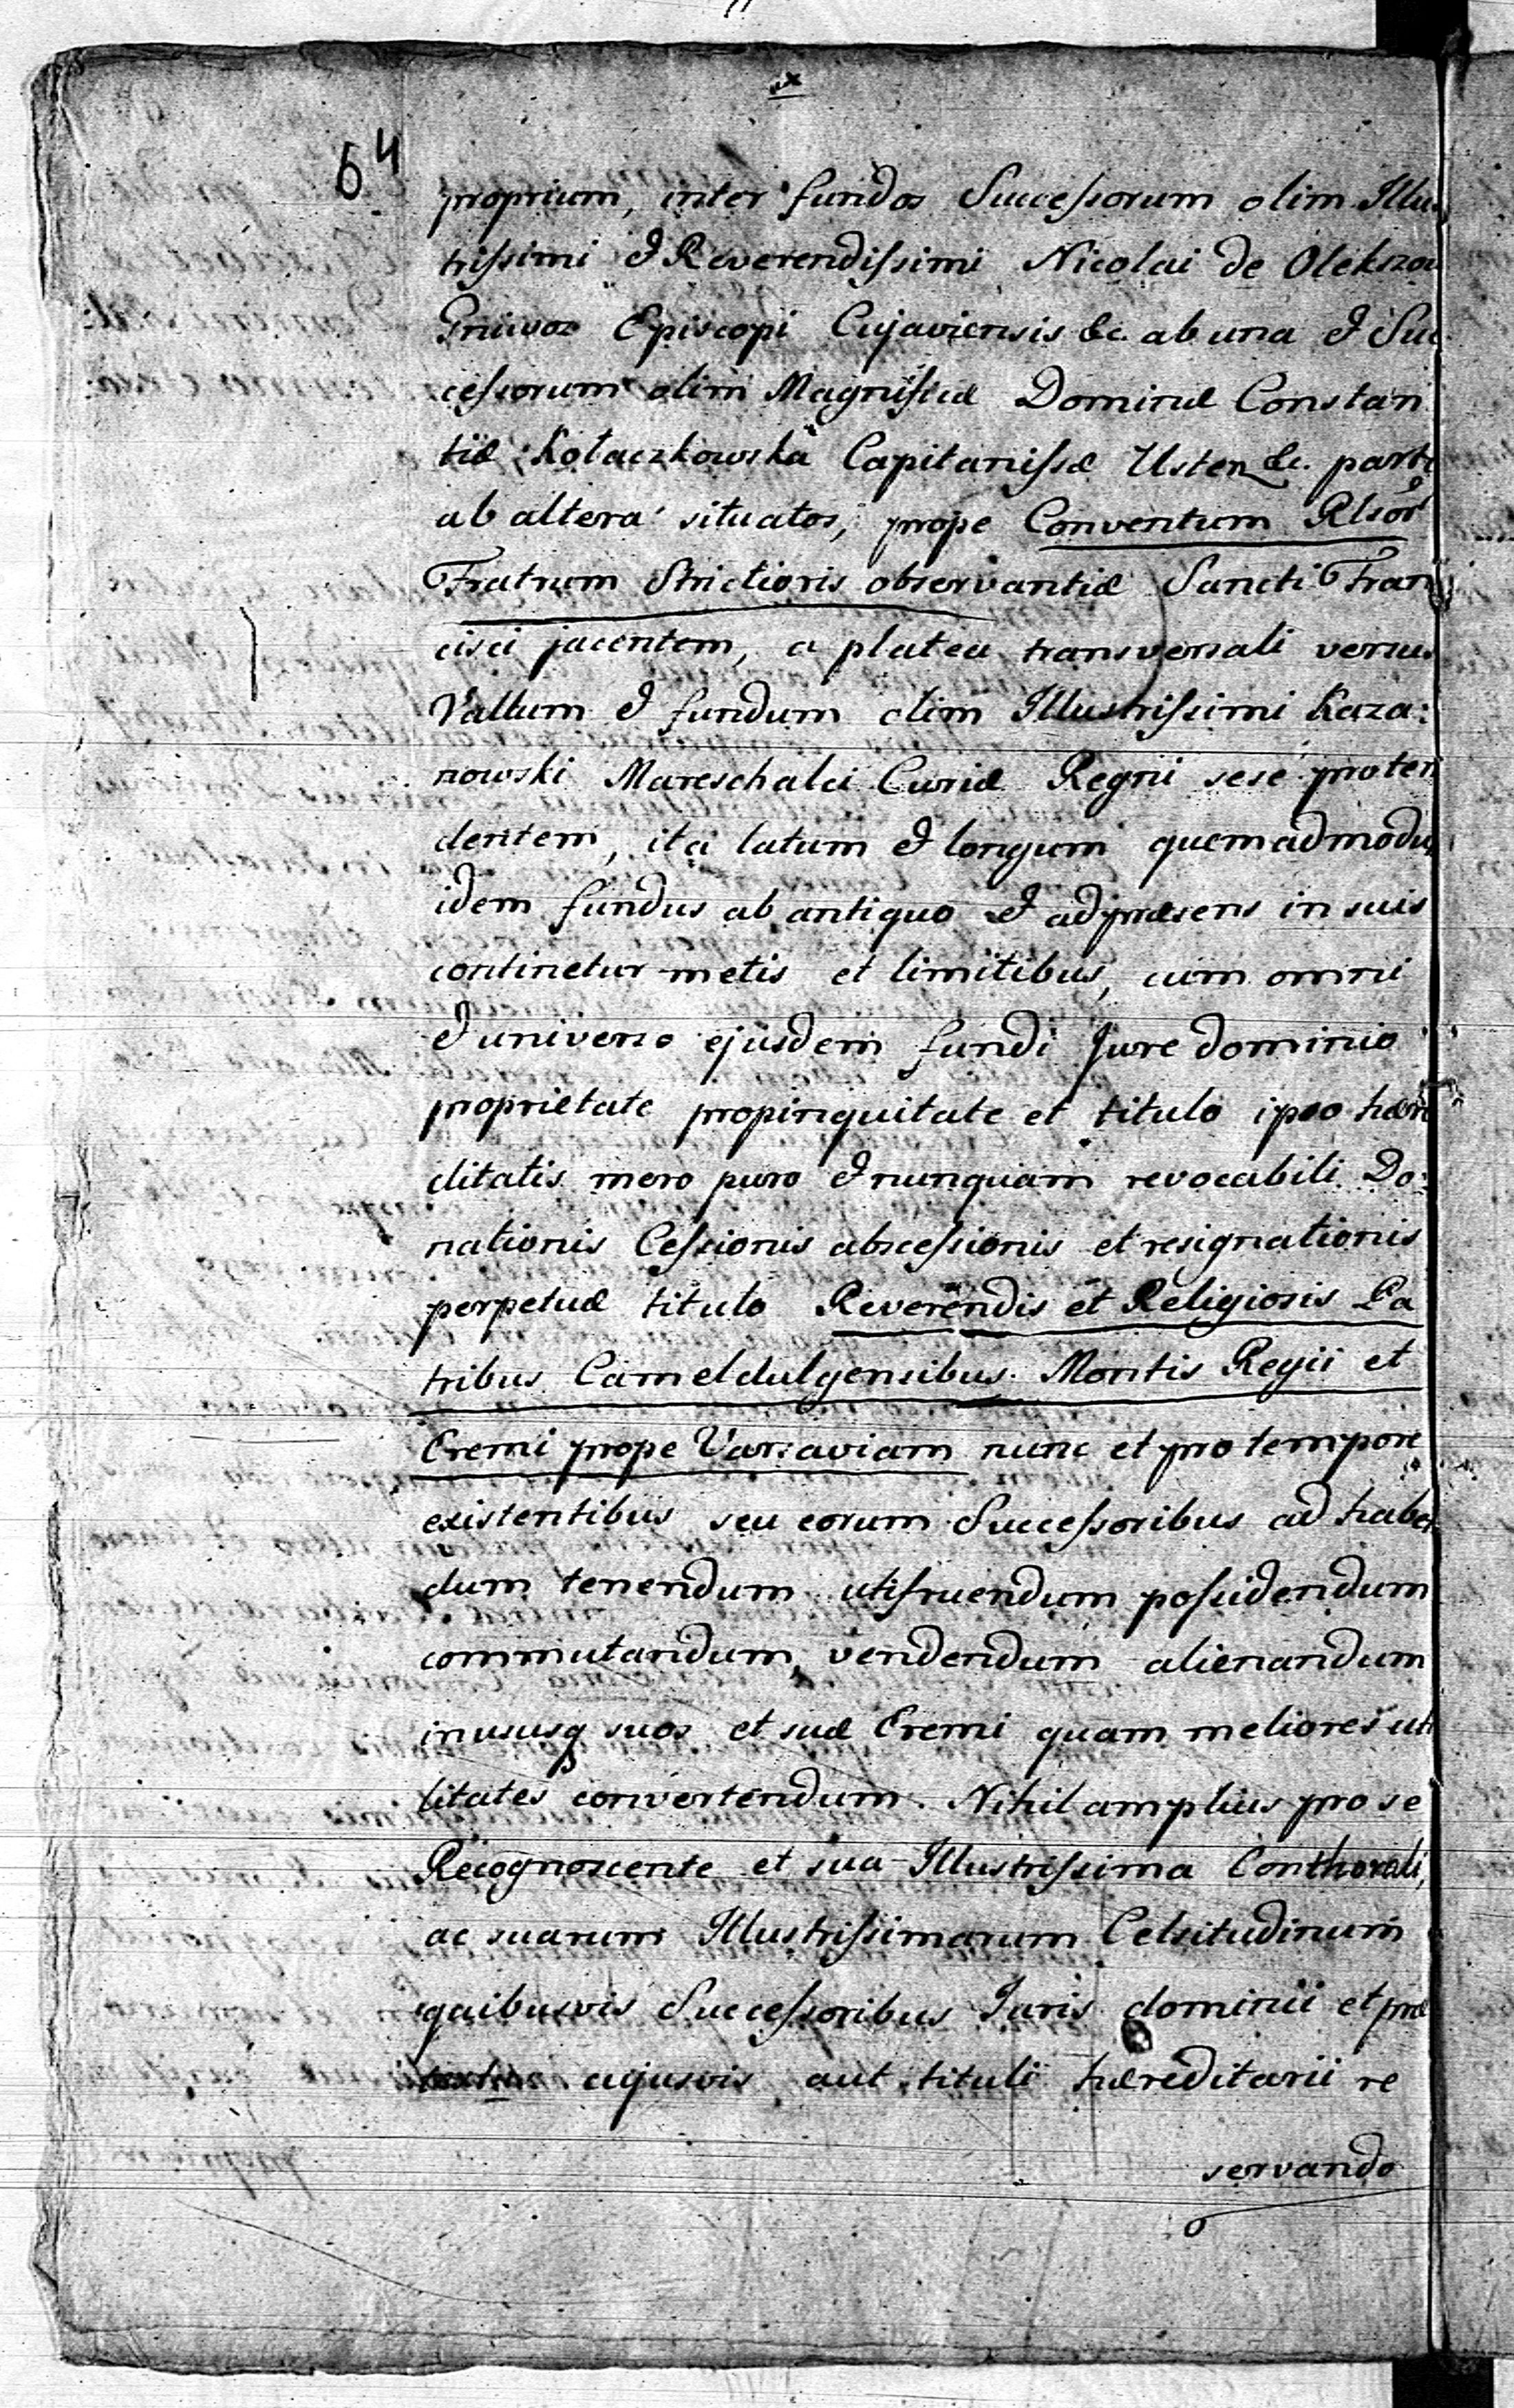 64
proprium, inter fundos Successorum olim Illus
trissimi & Reverendissimi Nicolai de Olekszow
Gniwosz Episcopi Cujaviensis &c. ab una & Suc
cessorum olim Magnificæ Dominæ Constan
tiæ Kołaczkowska Capitanissæ Usten &c. parte
ab altera situatos, prope Conventum Rlsor
Fratrum Strictioris observantiæ Sancti Fran
cisci jacentem, a platea transversali versus
Vallum & fundum olim Illustrissimi Kaza:
nowski Mareschalci Curiæ Regni sese proten
dentem, ita latum & longum quemadmodum
idem fundus ab antiquo & ad præsens in suis
continetur metis et limitibus, cum omni
& universo ejusdem fundi Jure dominio
proprietate propinquitate et titulo ipso hære
ditatis mero puro & nunquam revocabili Do:
nationis Cessionis abscessionis et resignationis
perpetuæ titulo Reverendis et Religiosis Pa
tribus Cameldulgensibus Montis Regii et
Eremi prope Varsaviam nunc et pro tempore
existentibus seu eorum Successoribus ad haben
dum tenendum utifruendum possidendum
commutandum, vendendum alienandum
inususq suos et suæ Eremi quam meliores uti
litates convertendum. Nihil amplius pro se
Recognoscente et sua Illustrissima Conthorali,
ac suarum Illustrissimarum Celsitudinum
quibusvis Successoribus Juris dominii et præ
cujusvis aut tituli hæreditarii re
servando